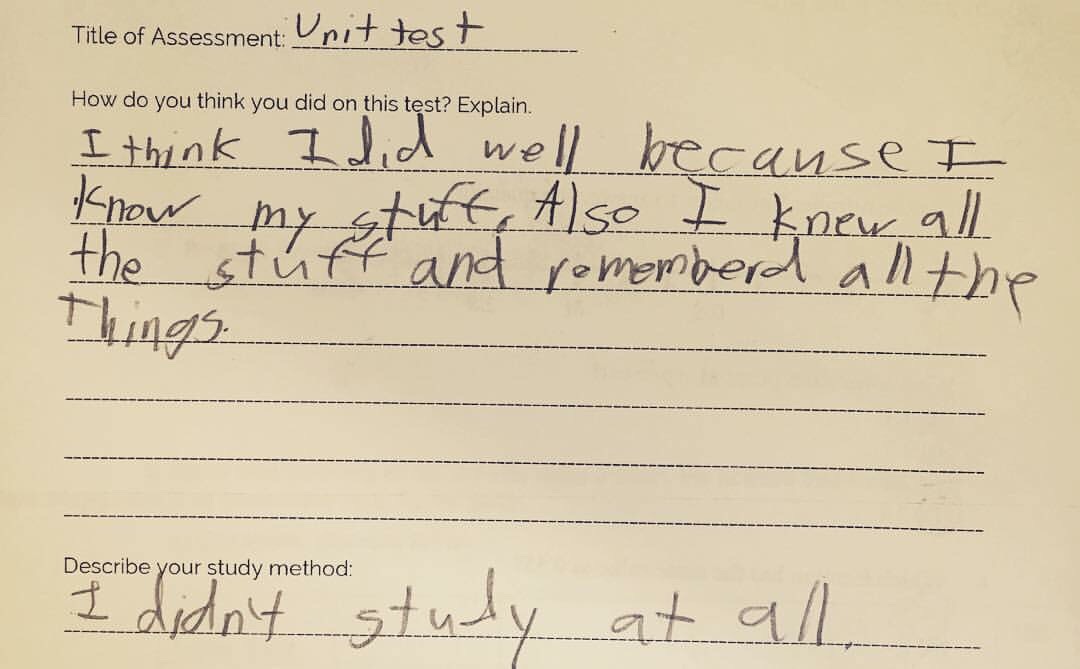 Title of Assessment: Unit test
How do you think you did on this test? Explain.
I think I did well because I
know my stuff. Also I knew all
the stuff and rememberd all the
Things.
Describe your study method:
I didn't study at all.